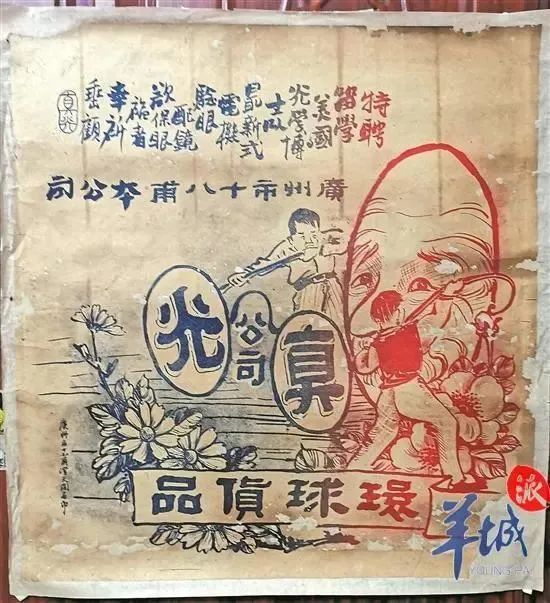 特聘
留學
美國
光學博
士以
最新式
電機
驗眼
配鏡
欲保眼
福者
幸祈
垂顧
真光
廣州市十八甫本公司
真光
公司
環球貨品
羊城派
YOUNG PAI